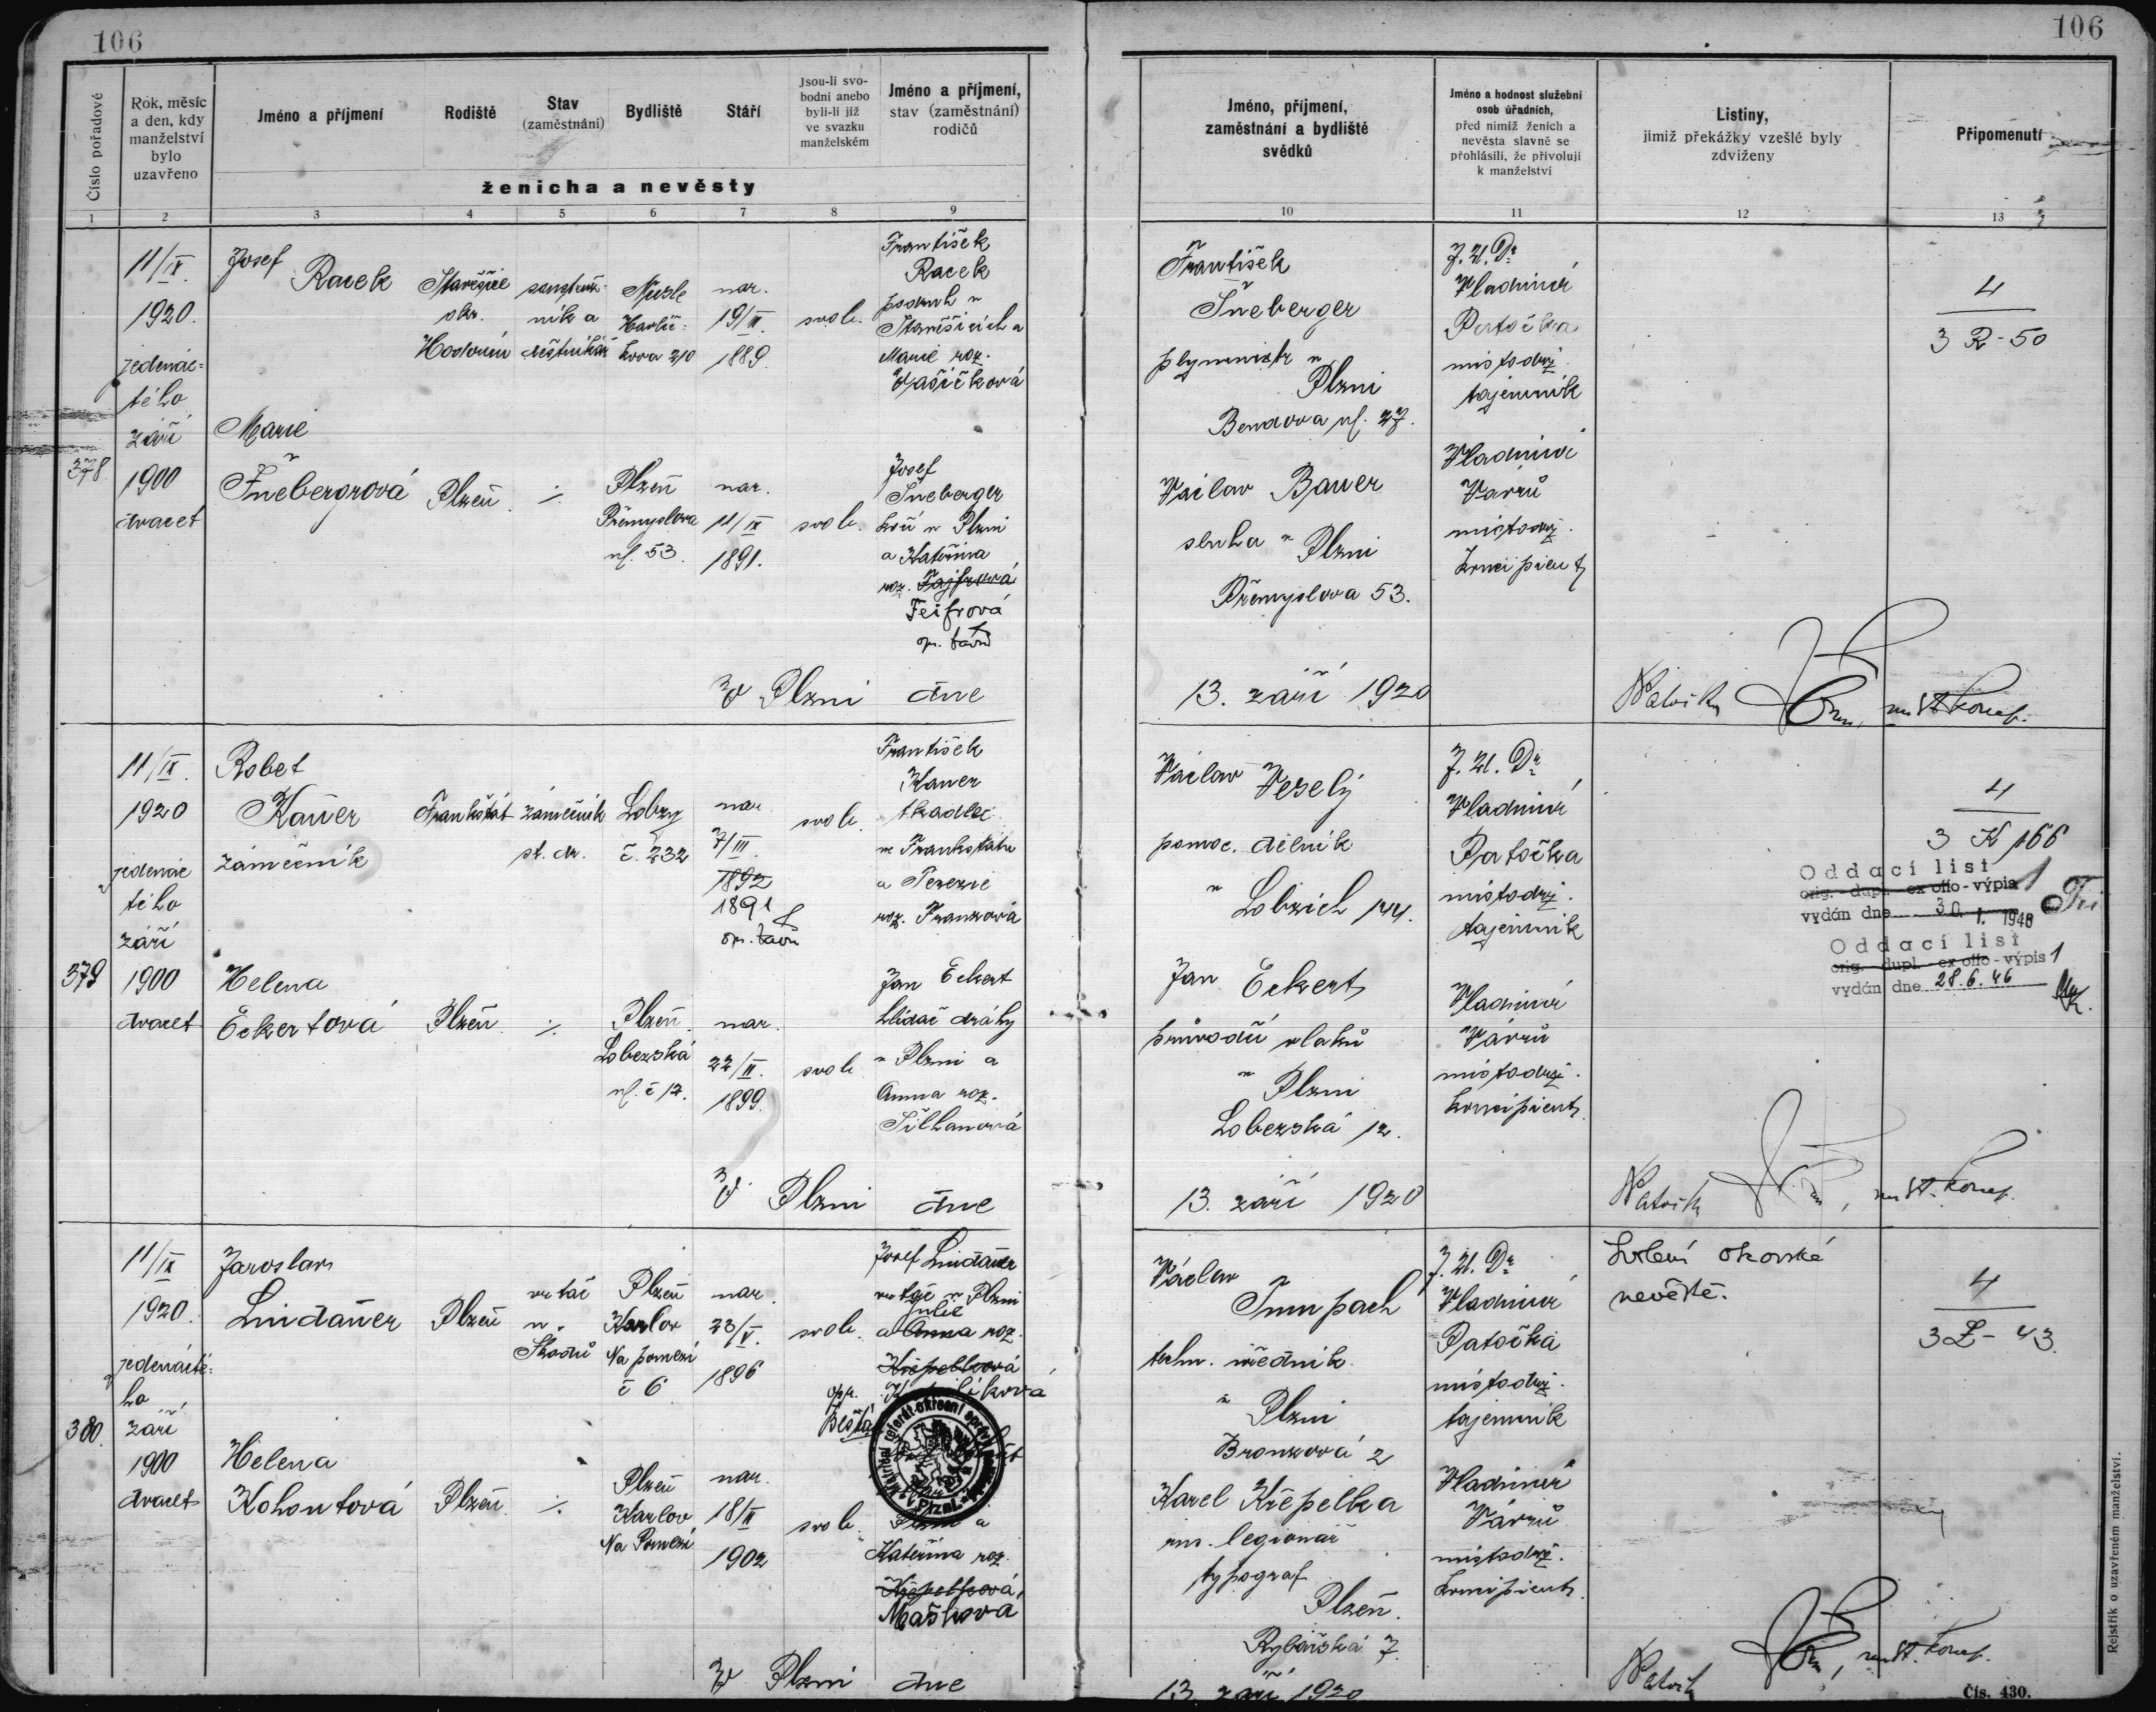 106
106
Číslo pořadové
Rok, měsíc
a den, kdy
manželství
bylo
uzavřeno
Jméno a příjmení
Rodiště
Stav
(zaměstnání)
Bydliště
Stáří
Jsou-li svo-
bodni anebo
byli-li již
ve svazku
manželském
Jméno a příjmení,
stav (zaměstnání)
rodičů
ženicha a nevěsty
Jméno, příjmení,
zaměstnání a bydliště
svědků
Jméno a hodnost služební
osob úřadních,
před nimiž ženich a
nevěsta slavně se
přohlásili, že přivolují
k manželství
Listiny,
jimiž překážky vzešlé byly
zdviženy
Připomenutí
1 2 3 4 5 6 7 8 9 10 11 12 13
378.
11/IX.
1920.
jedenác-
tého
září
1900
dvacet
Josef
Racek
okr.
Hodonín
níka
Nusle
Havlíč-
kova 210
nar.
19/III.
1889.
svob.
František
Racek
Marie roz.
Vašíčková
Marie
Šnebergrová
Plzeň
Plzeň
Přemyslova
ul. 53.
nar.
11/IX
1891.
svob.
Josef
Šneberger
v Plzni
a Kateřina
roz. Fajfrová
Feifrová
František
Šneberger
v
Plzni
Bendova ul. 27.
Václav Bauer
sluha v Plzni
Přemyslova 53.
J. U. Dr
Vladimír
Patočka
místodrž.
tajemník
Vladimír
Vávrů
místodrž.
koncipient
4
3 R - 50
V Plzni dne
13. září 1920
379
11/IX.
1920
jedenác
tého
září
1900
dvacet
Robet
Kaňer
zámečník
Frankštát
zámečník
st. dr.
Lobzy
č. 232
nar.
7/III.
1892
1891
svob.
František
Kaner
tkadlec
ve Frankštátu
a Terezie
roz. Franzová
Helena
Eckertová
Plzeň
Plzeň
Lobezská
ul. č 12.
nar.
22/III.
1899.
svob.
Jan Eckert
hlídač dráhy
v Plzni a
Anna roz.
Šilhanová
Václav Veselý
pomoc. dělník
v Lobzích 144.
Jan Eckert
průvodčí vlaků
v Plzni
Lobezská 12.
J. U. Dr
Vladimír
Patočka
místodrž.
tajemník
Vladimír
Vávrů
místodrž.
koncipient
4
3 K 166
Oddací list
orig. - dupl. - ex offo - výpis 1
vydán dne 30. 1. 1940
Oddací list
orig. - dupl. - ex offo - výpis 1
vydán dne 28. 6. 46
V Plzni dne
13. září 1920
380.
11/IX
1920.
jedenácté-
ho
září
1900
dvacet
Jaroslav
Lindauer
Plzeň
vrtač
u
Škodů
Plzeň
Karlov
Na pomezí
č 6
nar.
23/V.
1896
svob.
Josef Lindauer
vrtač v Plzni
Julie
a Anna roz.
Křepelková
Helena
Kohoutová
Plzeň
Plzeň
Karlov
Na Pomezí
nar.
18/III
1902
svob.
Kateřina roz.
Křepelková
Mašková
Václav
Šumpach
techn. úředník
v Plzni
Bronzová 2
Karel Křepelka
legionář
typograf
Plzeň.
Rybářská 7.
J. U. Dr
Vladimír
Patočka
místodrž.
tajemník
Vladimír
Vávrů
místodrž.
koncipient
nevěstě.
4
3 L - 43.
V Plzni dne
13. září 1920
Rejstřík o uzavřeném manželství.
Čís. 430.